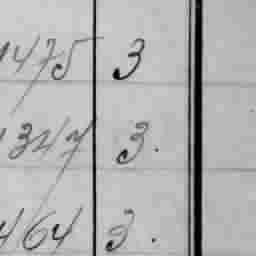 1475 3
1347 3.
464 3.